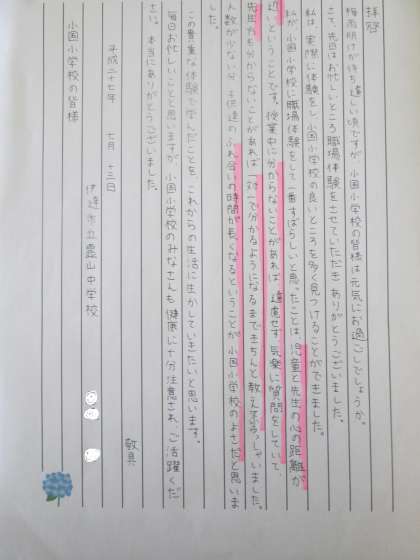 拝啓
梅雨明けが待ち遠しい頃ですが、小国小学校の皆様は元気にお過ごしでしょうか。
さて、先日はお忙しいところ職場体験をさせていただきありがとうございました。
私は、実際に体験をし、小国小学校の良いところを多く見つけることができました。
私が小国小学校に職場体験をして一番すばらしいと思ったことは、児童と先生の心の距離が
近いということです。授業中に分からないことがあれば、遠慮せず気楽に質問をしていて、
先生方も分からないことがあれば一対一で分かるようになるまできちんと教えていらっしゃいました。
人数が少ない分、子供達のふれ合いの時間が長くなるということが、小国小学校のよさだと思いま
した。
この貴重な体験で学んだことを、これからの生活に生かしていきたいと思います。
毎日お忙しいことと思いますが、小国小学校のみなさんも健康に十分注意され、ご活躍くだ
さい。本当にありがとうございました。
敬具
平成二十七年 七月 十三日
伊達市立霊山中学校
小国小学校の皆様